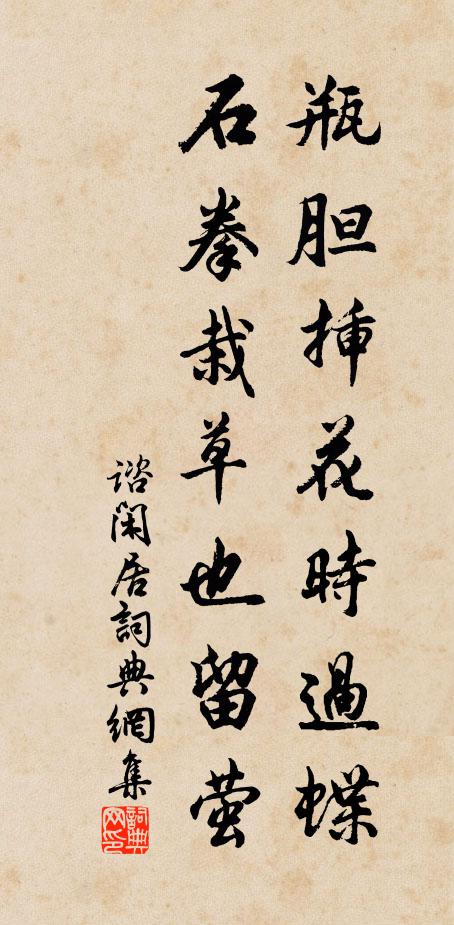 瓶胆挿花時過蝶
石拳栽草也留萤
谘閑居詞典網集
詞典网印